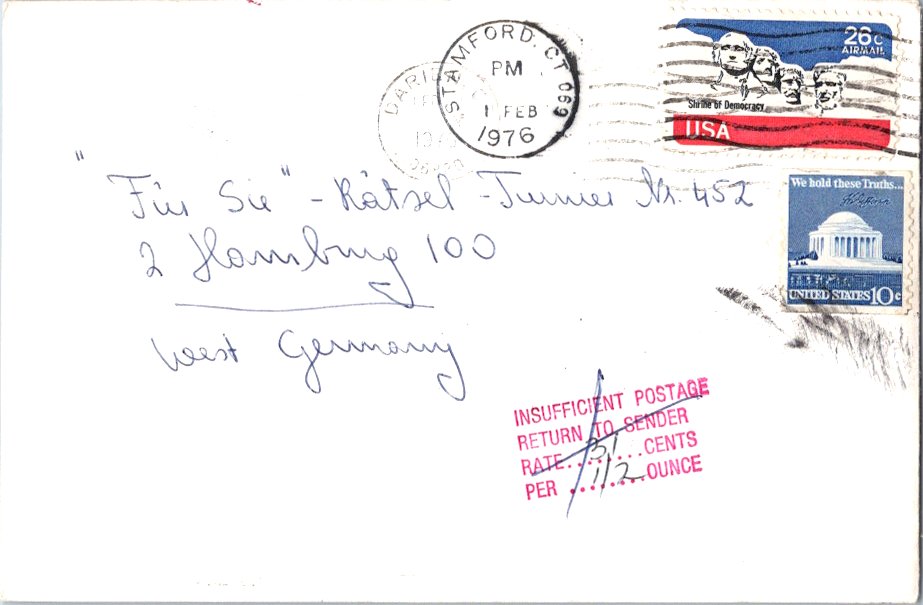 STAMFORD, CT 069
PM
1 FEB
1976
DARIE
26c
AIRMAIL
Shrine of Democracy
USA
We hold these Truths...
UNITED STATES 10c
"Für Sie" - Rätsel - Turnier Nr. 452
2 Hamburg 100
West Germany
INSUFFICIENT POSTAGE
RETURN TO SENDER
RATE........31........CENTS
PER ........1/2........OUNCE